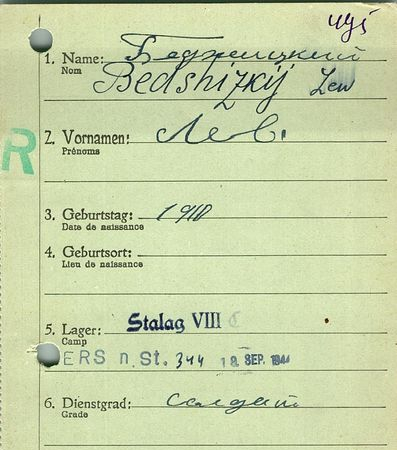 ччј
1. Name: Беджицкий
Nom
Bedshizkij Lew
R
2. Vornamen: Лев.
Prénoms
3. Geburtstag: 1910
Date de naissance
4. Geburtsort:
Lieu de naissance
5. Lager: Stalag VIII C
Camp
VERS n. St. 344 18 SEP. 1944
6. Dienstgrad: салдат
Grade